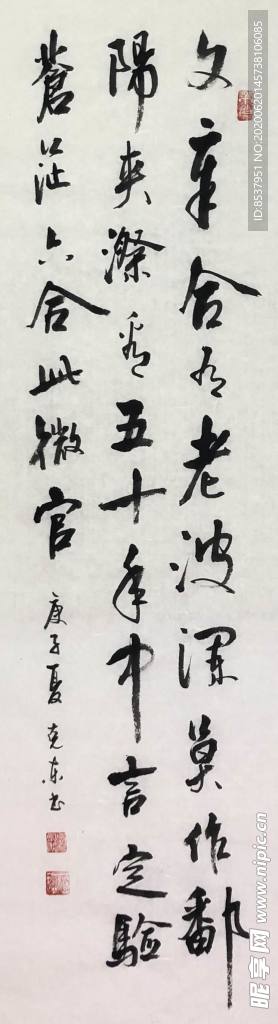 文章合有老波澜莫作鄱
陽夾漈看五十年中言定驗
蒼茫六合此微官
庚子夏克东书
ID:8537951 NO:20200620145738106085
昵享网 www.nipic.cn